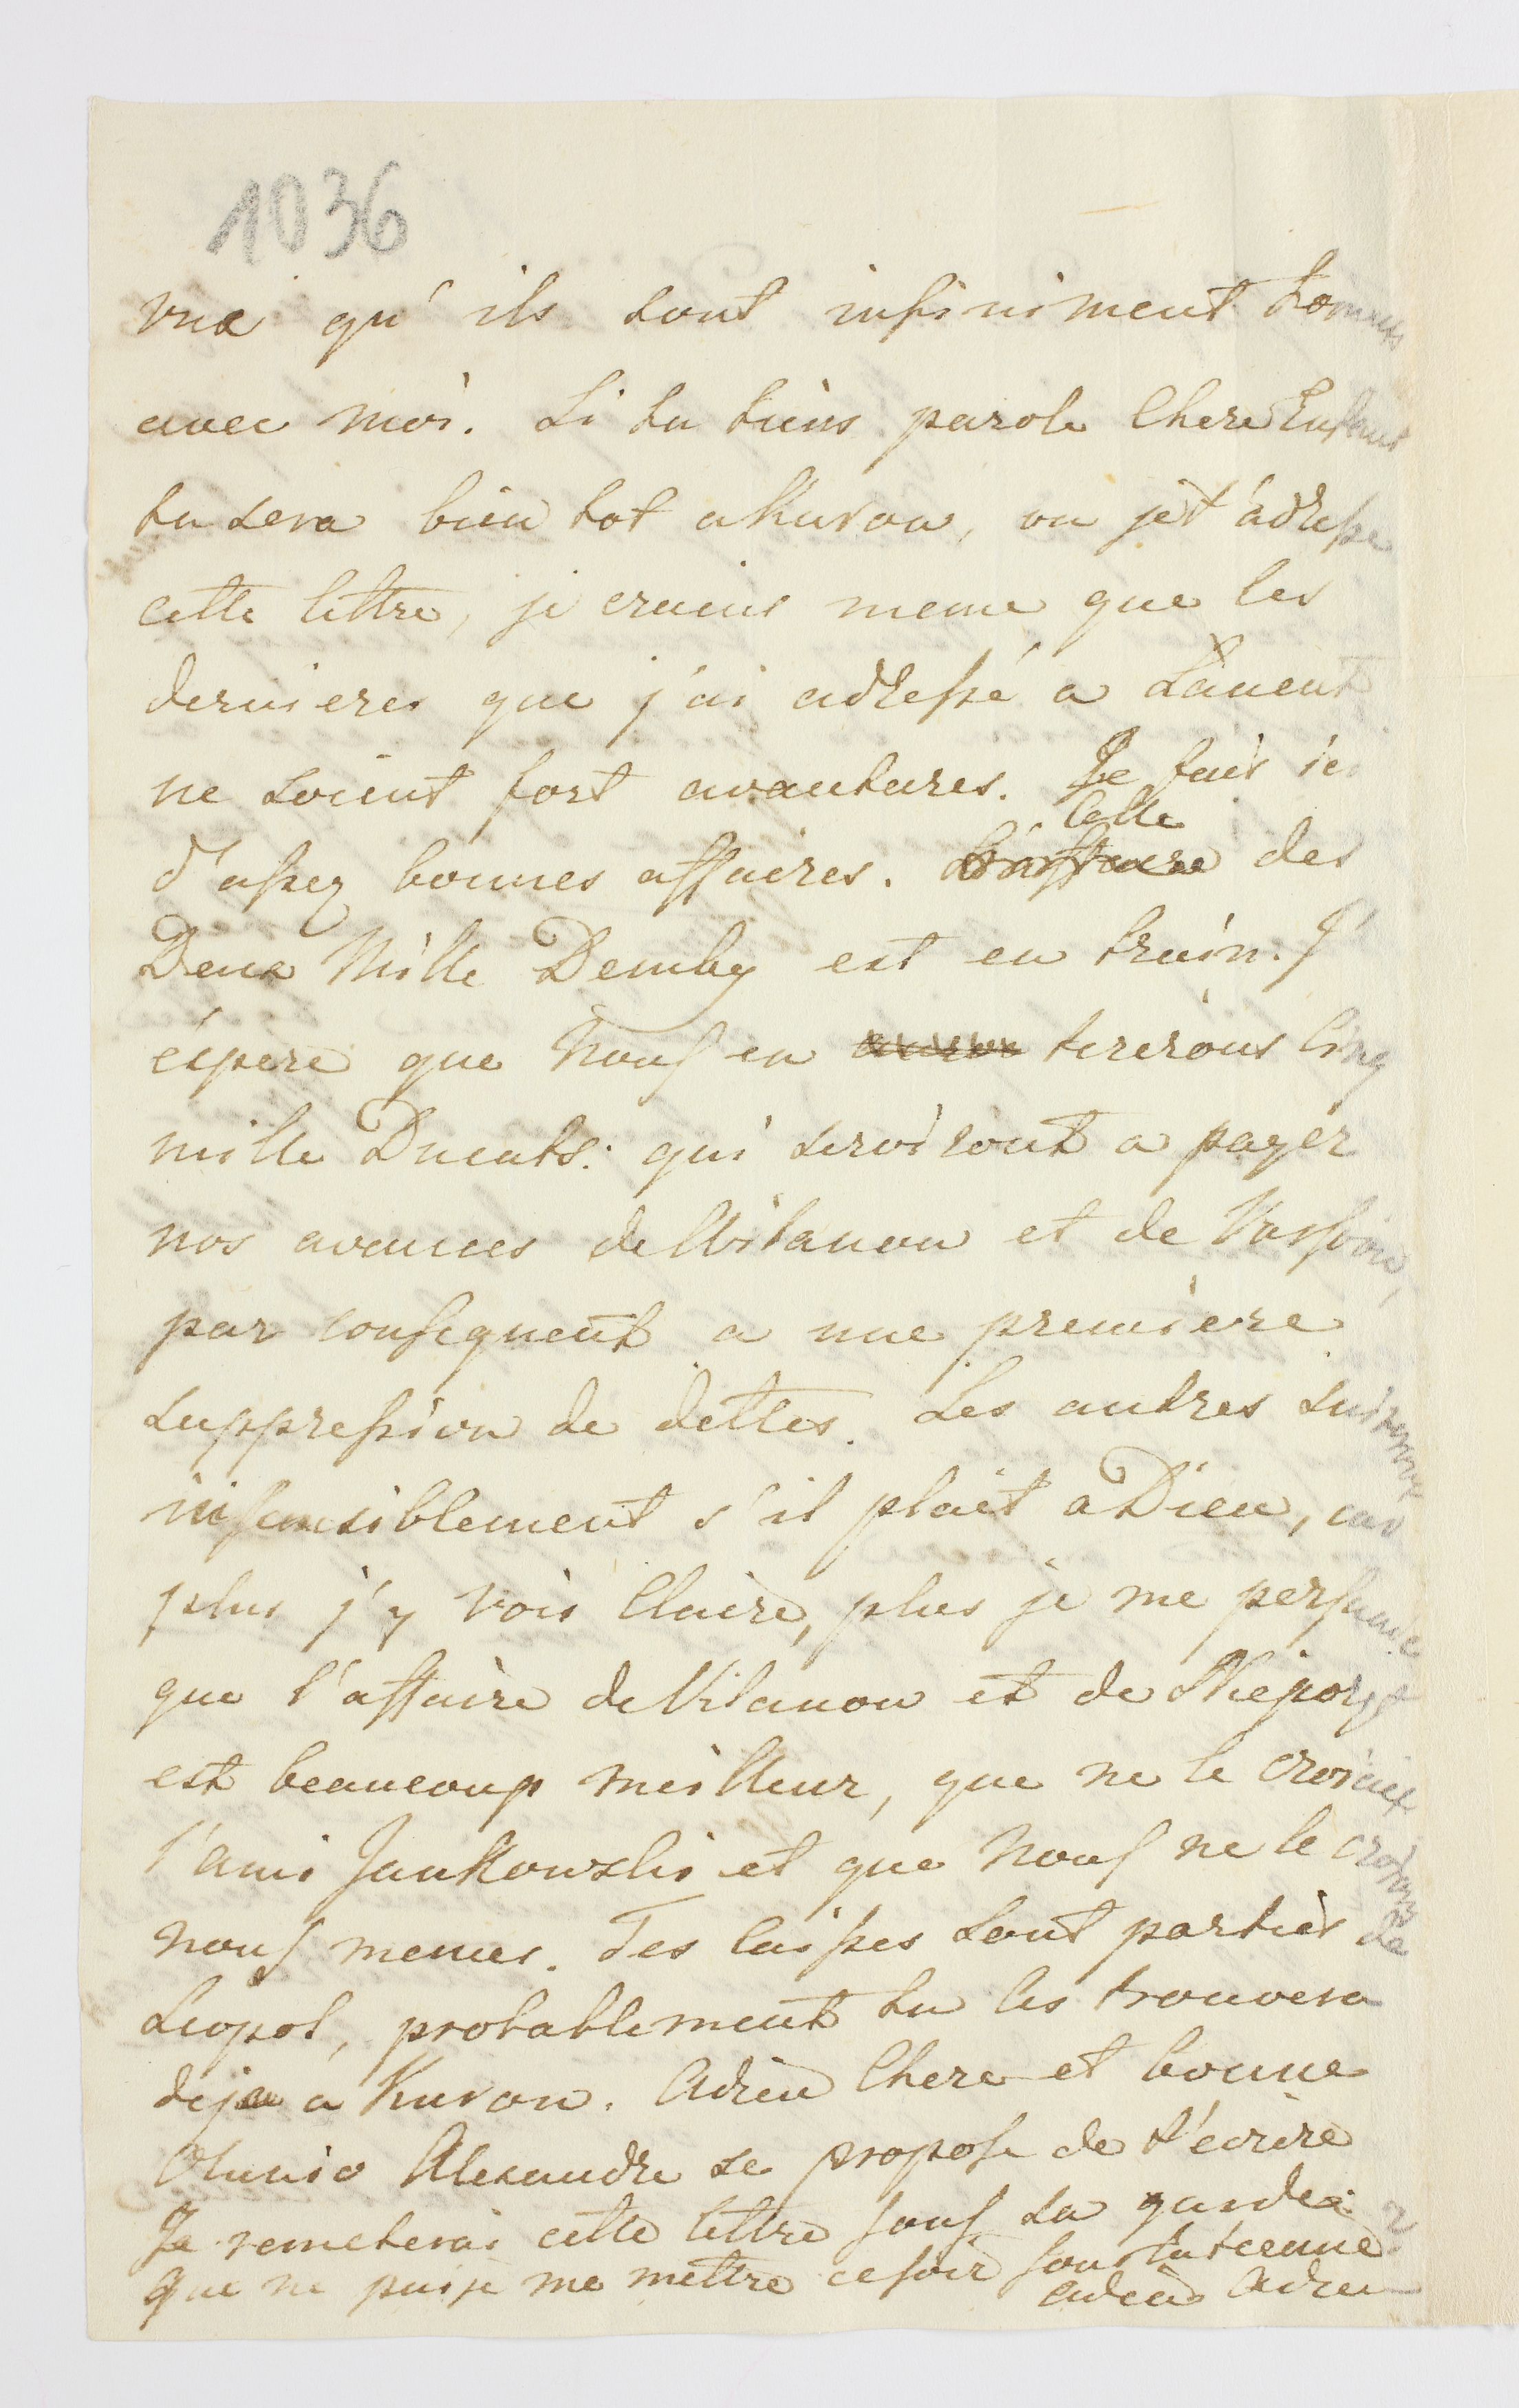 1036
vrai qu'ils sont infiniment bonnes
avec moi. Si tu tiens parole Chere Enfant
tu sera bien tot a Kurow, ou je t'adresse
cette lettre, je crains meme que les
dernieres que j'ai adressé a Lancut
ne soient fort avantures. Je fais ici
d'assez bonnes affaires. Celle des
Deux Mille Demby est en train. J'
éspere que nous en tirerons Cinq
mille Ducats: qui serviront a payer
nos avances de Wilanow et de Varsovie,
par consequent a une premiere
suppression de dettes. Les autres suivront
insensiblement s'il plait a Dieu, car
plus j'y vois Claire, plus je me persuade
que l'affaire de Vilanow et de Nieporet
est beaucoup meilleur, que ne le croiait
l'ami Jankowski et que nous ne le croions
nous memes. Tes caisses sont parties de
Leopol, probablement tu les trouvera
deja a Kurow. Adieu Chere et bonne
Olunio Alexandre se propose de t'ecrire
Je remeterai cette lettre sous sa garde.
Que ne puis je me mettre ce soir sous la tienne
adieu Adieu